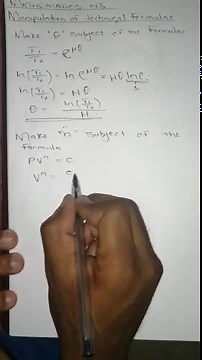 Mathematics N3
Manipulation of technical formulae
Make "θ" subject of the formulae
T₁/T₂ = e^μθ
ln(T₁/T₂) = ln e^μθ = μθ ln e
ln(T₁/T₂) = μθ
θ = ln(T₁/T₂)/μ
Make "n" subject of the
formula
PVⁿ = C
Vⁿ = C